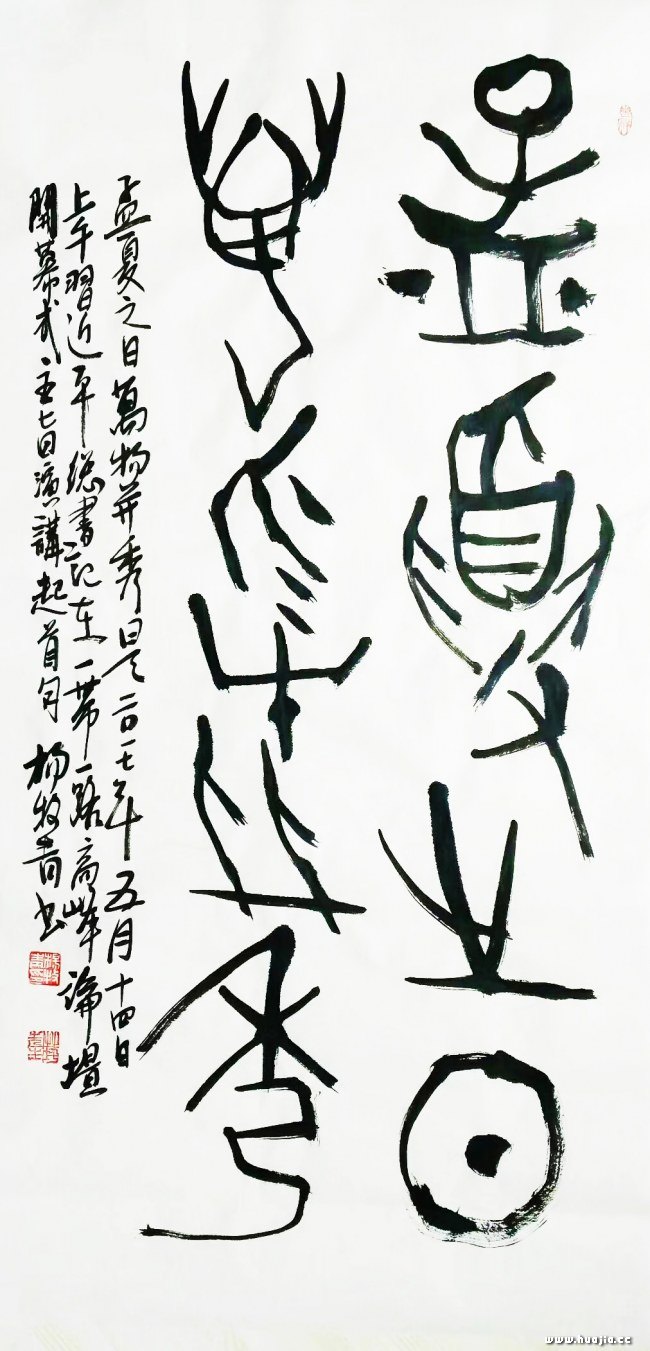 孟夏之日
萬物并秀
孟夏之日萬物并秀是二〇一七年五月十四日
上午習近平總書記在一帶一路高峯論壇
開幕式主旨演講起首句 楊牧青書
www.huajia.cc